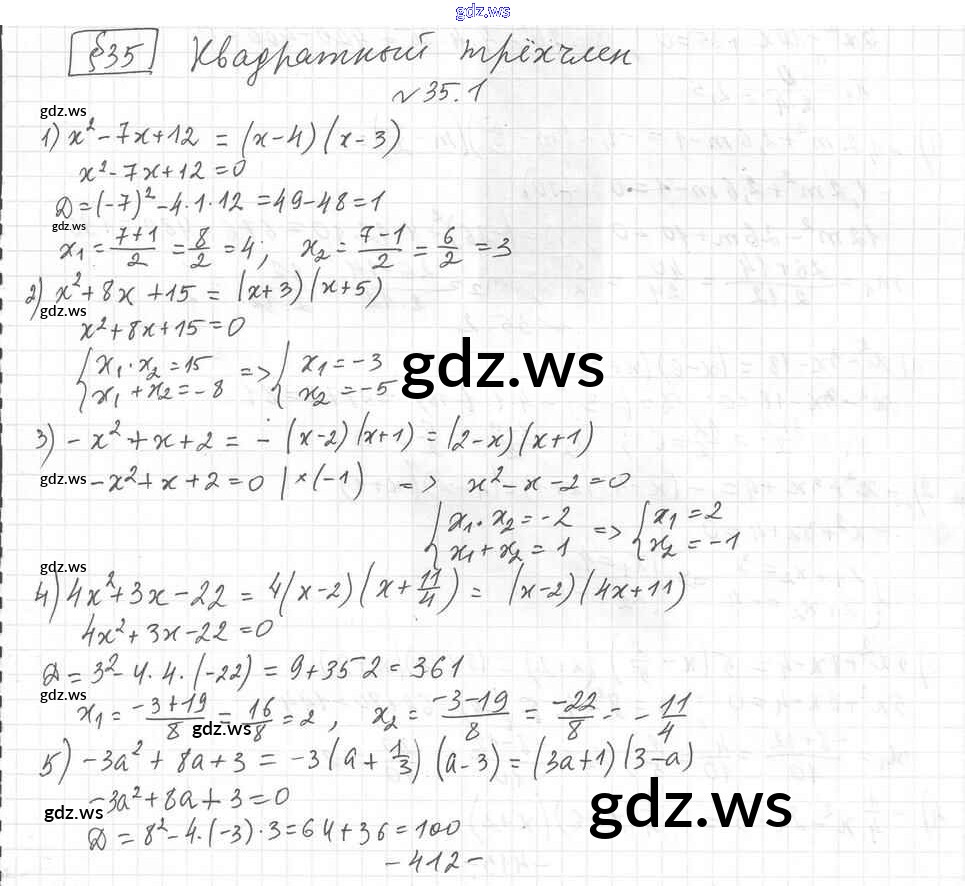 gdz.ws
§35 Квадратный трёхчлен
№35.1
gdz.ws
1) x² - 7x + 12 = (x - 4)(x - 3)
x² - 7x + 12 = 0
D = (-7)² - 4·1·12 = 49 - 48 = 1
gdz.ws
x₁ = (7+1)/2 = 8/2 = 4; x₂ = (7-1)/2 = 6/2 = 3
2) x² + 8x + 15 = (x+3)(x+5)
gdz.ws
x² + 8x + 15 = 0
{ x₁·x₂ = 15 => { x₁ = -3
x₁ + x₂ = -8 x₂ = -5
gdz.ws
3) -x² + x + 2 = -(x-2)(x+1) = (2-x)(x+1)
gdz.ws
-x² + x + 2 = 0 |×(-1) => x² - x - 2 = 0
{ x₁·x₂ = -2 => { x₁ = 2
x₁ + x₂ = 1 x₂ = -1
gdz.ws
4) 4x² + 3x - 22 = 4(x-2)(x + 11/4) = (x-2)(4x+11)
4x² + 3x - 22 = 0
D = 3² - 4·4·(-22) = 9 + 352 = 361
gdz.ws
x₁ = (-3+19)/8 = 16/8 = 2, x₂ = (-3-19)/8 = -22/8 = -11/4
gdz.ws
5) -3a² + 8a + 3 = -3(a + 1/3)(a-3) = (3a+1)(3-a)
-3a² + 8a + 3 = 0
gdz.ws
gdz.ws
D = 8² - 4·(-3)·3 = 64 + 36 = 100
-412-